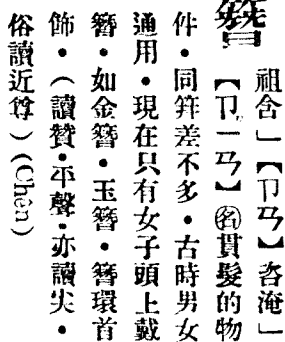 簪
祖含」【ㄗㄢ】咨淹」
【ㄗㄧㄢ】㊔貫髮的物
件‧同笄差不多‧古時男女
通用‧現在只有女子頭上戴
簪‧如金簪‧玉簪‧簪環首
飾‧(讀贊‧平聲‧亦讀尖‧
俗讀近尊)(Chên)